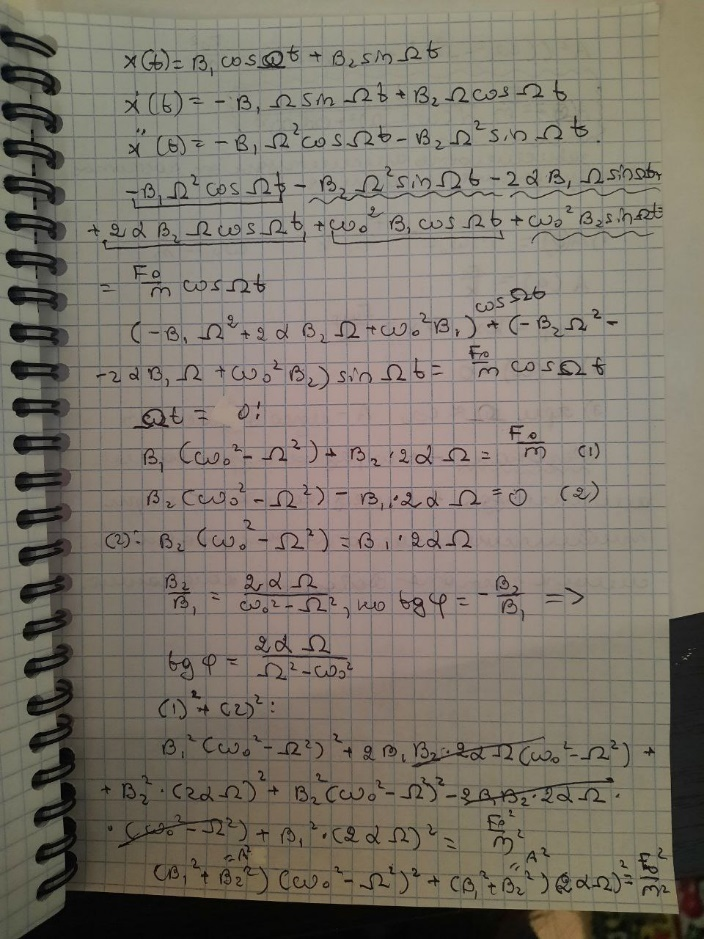 x(t) = B₁ cos Ωt + B₂ sin Ωt
ẋ(t) = - B₁ Ω sin Ωt + B₂ Ω cos Ωt
ẍ(t) = - B₁ Ω² cos Ωt - B₂ Ω² sin Ωt.
-B₁ Ω² cos Ωt - B₂ Ω² sin Ωt - 2αB₁ Ω sin Ωt
+ 2αB₂ Ω cos Ωt + ω₀² B₁ cos Ωt + ω₀² B₂ sin Ωt
= F₀/m cos Ωt
(-B₁ Ω² + 2αB₂ Ω + ω₀² B₁) cos Ωt + (-B₂ Ω² -
-2αB₁ Ω + ω₀² B₂) sin Ωt = F₀/m cos Ωt
Ωt = 0:
B₁ (ω₀² - Ω²) + B₂ · 2αΩ = F₀/m (1)
B₂ (ω₀² - Ω²) - B₁ · 2αΩ = 0 (2)
(2): B₂ (ω₀² - Ω²) = B₁ · 2αΩ
B₂/B₁ = 2αΩ/(ω₀² - Ω²), но tg φ = - B₂/B₁ =>
tg φ = 2αΩ/(Ω² - ω₀²)
(1)² + (2)²:
B₁² (ω₀² - Ω²)² + 2B₁ B₂ · 2αΩ (ω₀² - Ω²) +
+ B₂² · (2αΩ)² + B₂² (ω₀² - Ω²)² - 2B₁B₂ · 2αΩ ·
· (ω₀² - Ω²) + B₁² · (2αΩ)² = F₀²/m²
(B₁² + B₂²) (ω₀² - Ω²)² + (B₁² + B₂²) (2αΩ)² = F₀²/m²
= A² = A²